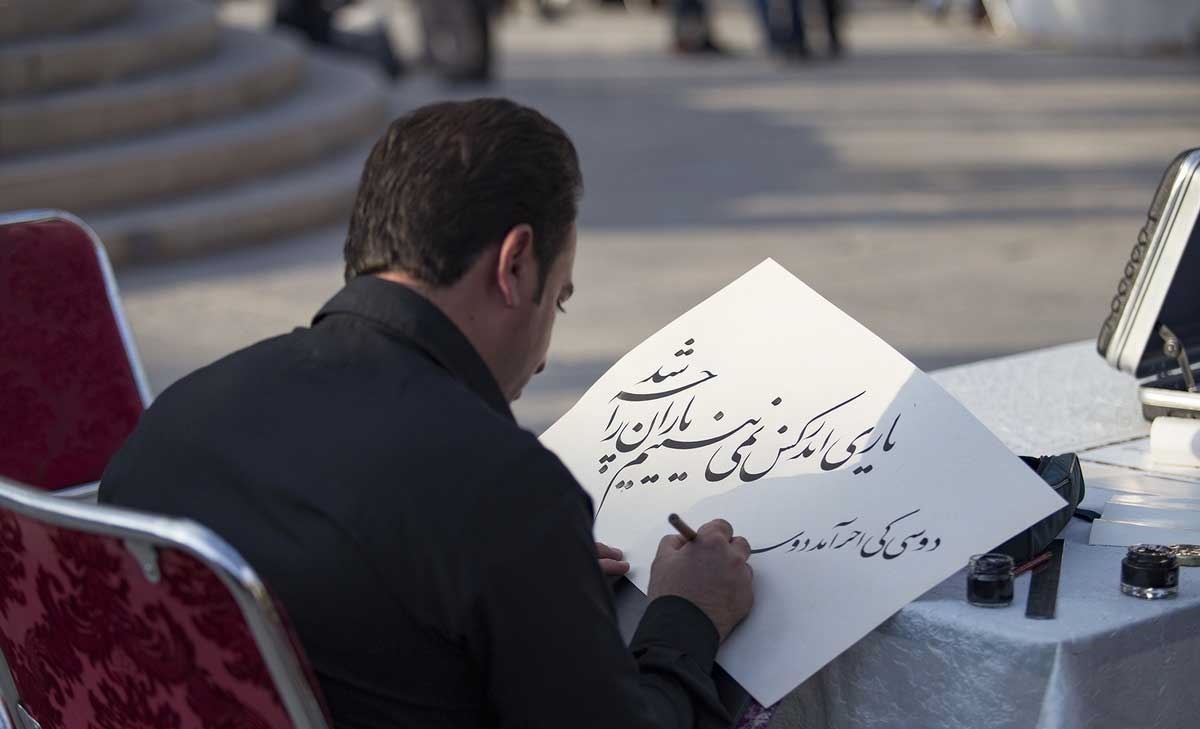 یاری اندر کس نمی بینیم یاران را چه شد
دوستی کی آخر آمد دوس